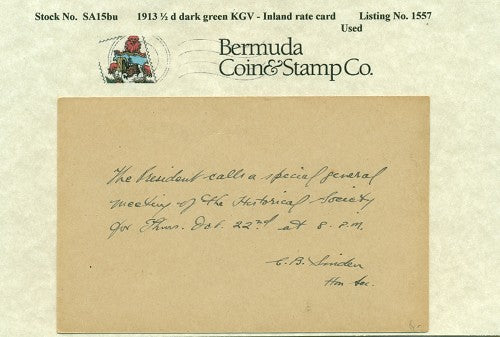 Stock No. SA15bu 1913 ½ d dark green KGV - Inland rate card Listing No. 1557
Used
Bermuda
Coin & Stamp Co.
The President calls a special general
meeting of the Historical Society
for Thurs. Oct. 22nd at 8. P.M.
C. B. Sinden
Hon Sec.